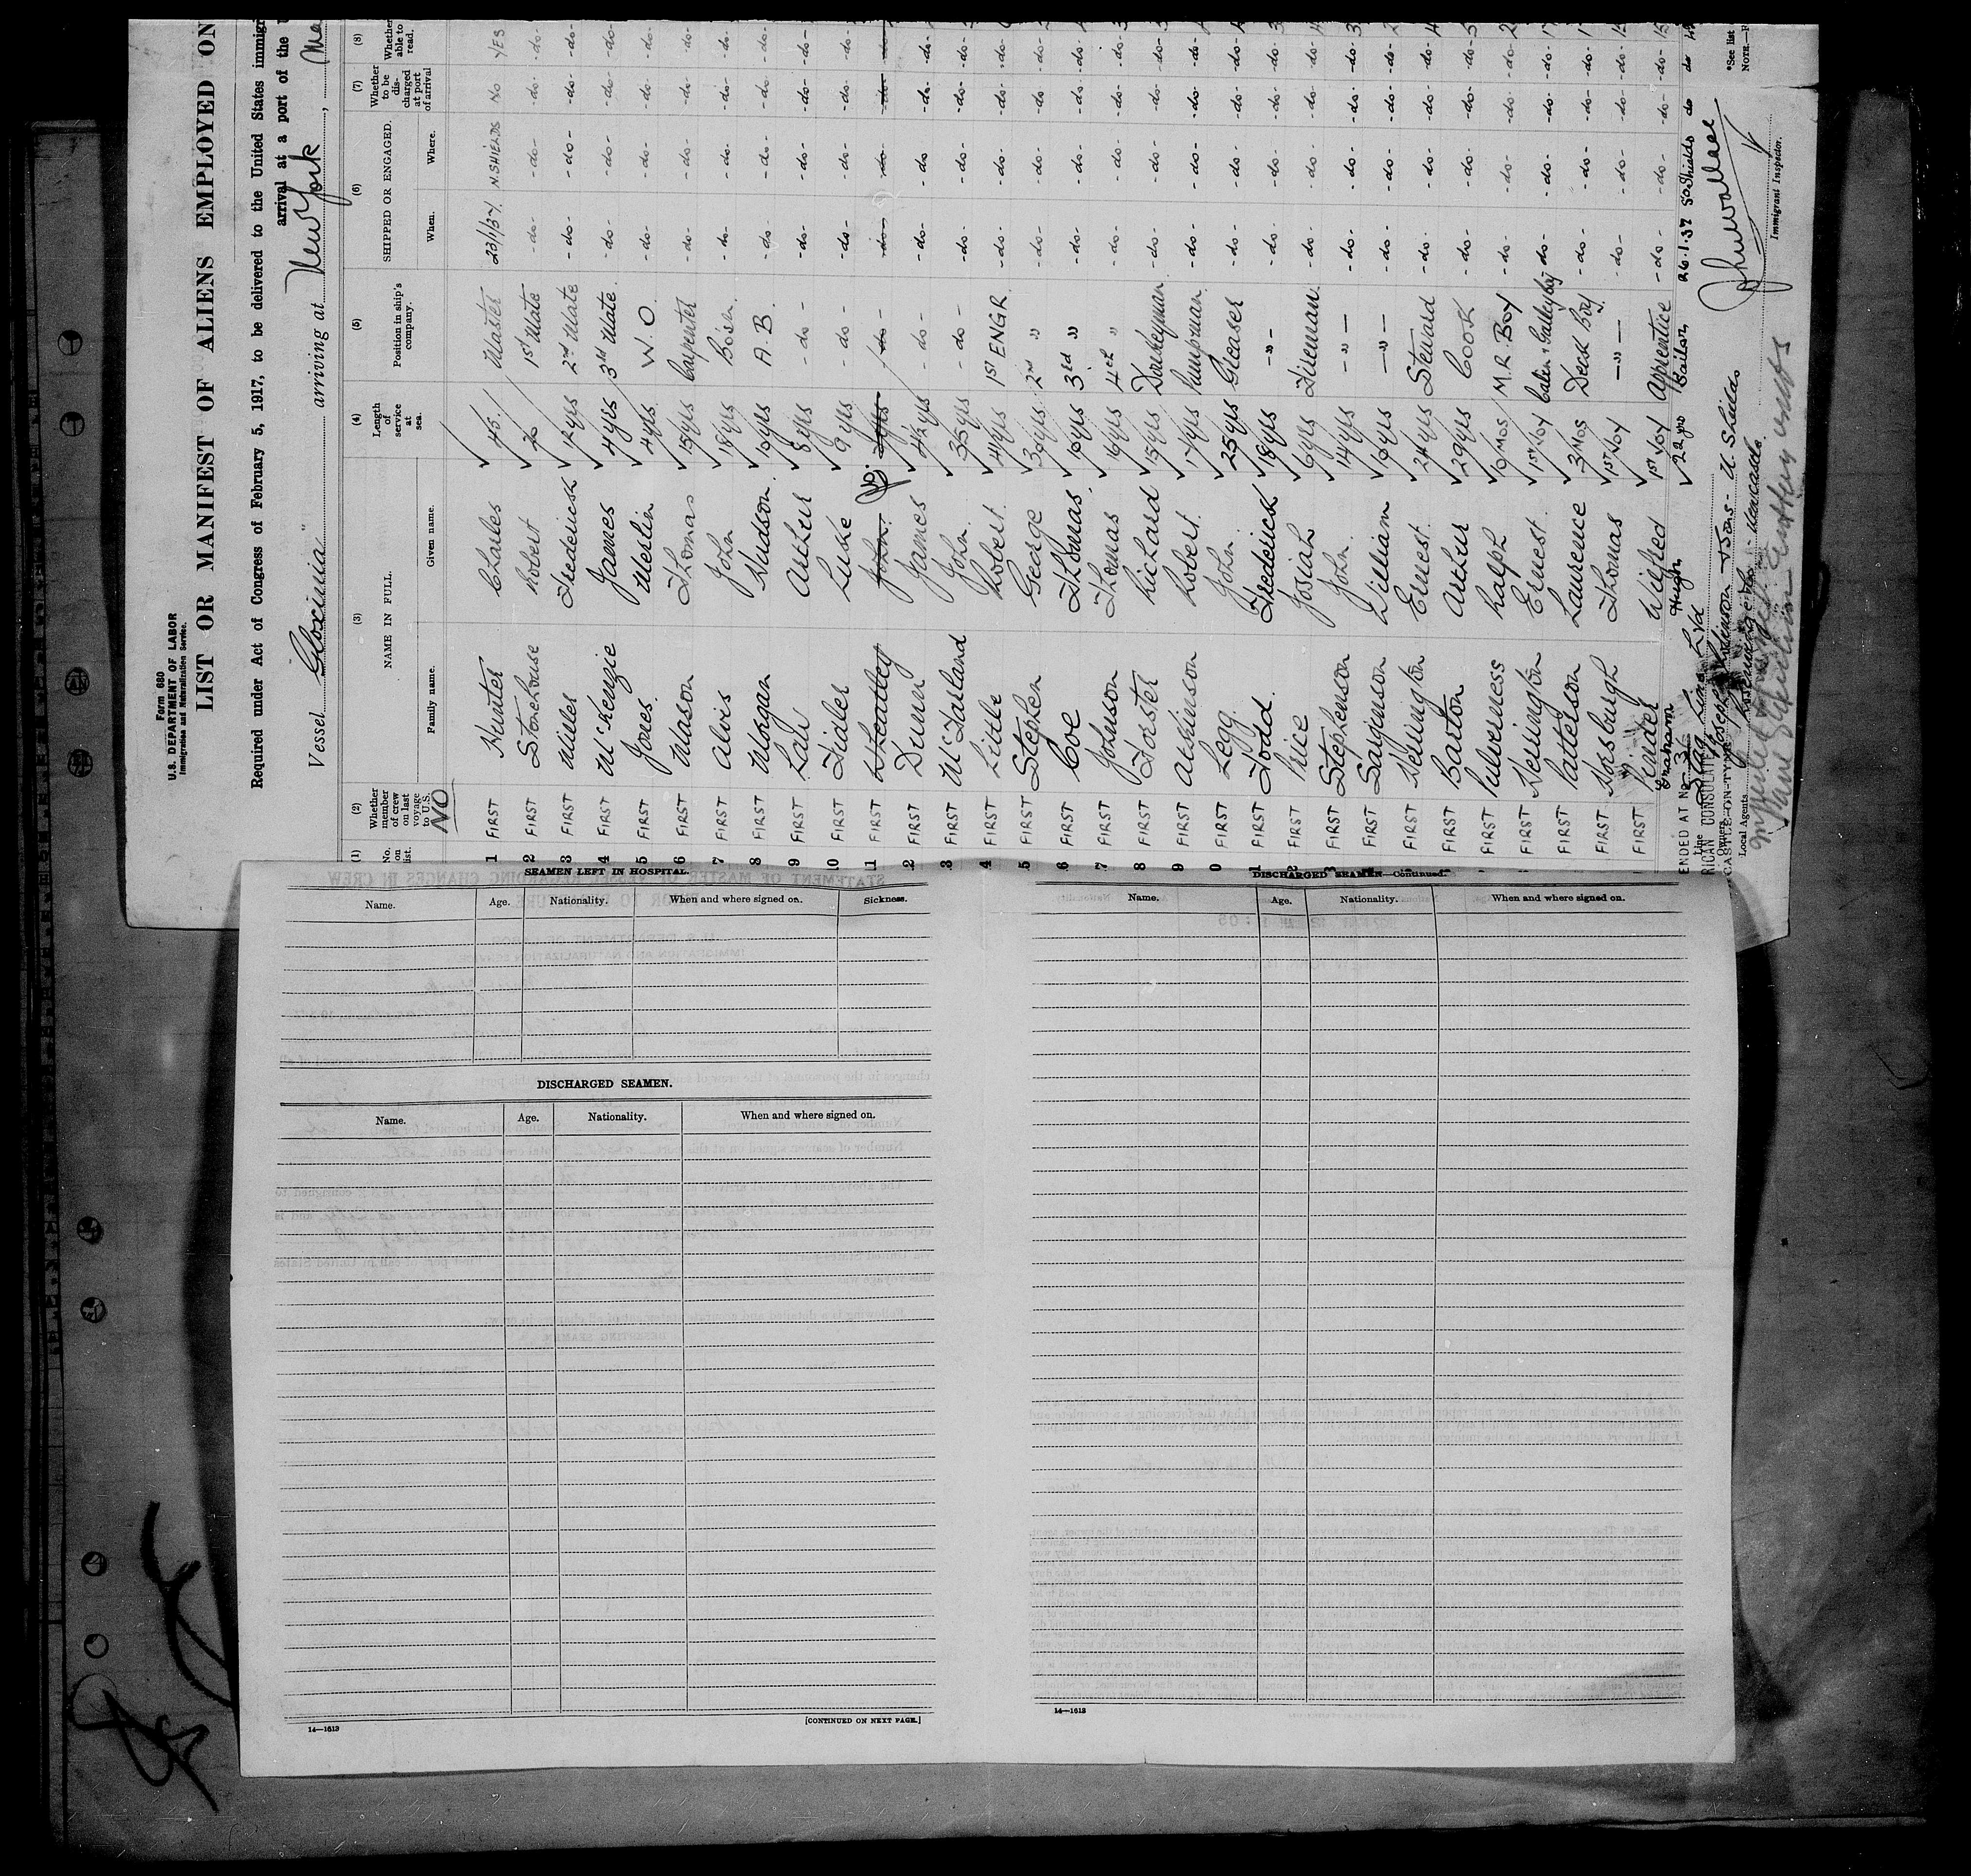 Form 680
U.S. DEPARTMENT OF LABOR
Immigration and Naturalization Service.
LIST OR MANIFEST OF ALIENS EMPLOYED ON
Required under Act of Congress of February 5, 1917, to be delivered to the United States immigr
arrival at a port of the U
Vessel Gloxinia" arriving at New York,
(1) (2) (3) (4) (5) (6) (7) (8)
No. on list. Whether member of crew on last voyage to U.S. NAME IN FULL. Length of service at sea. Position in ship's company. SHIPPED OR ENGAGED. Whether to be dis-charged at port of arrival Whether able to read.
Family name. Given name. When. Where.
NO
1 FIRST Hunter Charles 45. Master 23/1/37. N.SHIELDS NO YES
2 FIRST Stonehouse Robert 1st Mate -do- -do- -do- -do-
3 FIRST Miller Frederick 12 yrs 2nd Mate -do- -do- -do- -do-
4 FIRST McKenzie James 4 yrs 3rd Mate -do- -do- -do- -do-
5 FIRST Jones Merlin 4 yrs W. O. -do- -do- -do- -do-
6 FIRST Mason Thomas 15 yrs Carpenter -do- -do- -do- -do-
7 FIRST Alvis John 18 yrs Bo's'n -do- -do- -do- -do-
8 FIRST Morgan Hudson 10 yrs A. B. -do- -do- -do- -do-
9 FIRST Law Arthur 8 yrs -do- -do- -do- -do- -do-
10 FIRST Fidler Luske 9 yrs -do- -do- -do- -do- -do-
11 FIRST Wheatley John -do- -do- -do- -do- -do-
2 FIRST Dunn James 42 yrs -do- -do- -do -do- -do-
3 FIRST McFarland John 35 yrs -do- -do- -do- -do-
4 FIRST Little Robert 4 yrs 1ST ENGR -do- -do- -do- -do-
5 FIRST Stephen George 36 yrs 2nd " -do- -do- -do- -do-
6 FIRST Coe Thomas 10 yrs 3rd " -do- -do- -do- -do-
7 FIRST Johnson Thomas 16 yrs 4th " -do- -do- -do- -do-
8 FIRST Forster Richard 15 yrs Donkeyman -do- -do- -do- -do-
9 FIRST Atkinson Robert 17 yrs Pumpman -do- -do- -do- -do-
0 FIRST Legg John 25 yrs Greaser -do- -do- -do- -do-
1 FIRST Todd Frederick 18 yrs -"- -do- -do- -do- -do-
2 FIRST Price Josiah 6 yrs Fireman -do- -do- -do- -do-
3 FIRST Stephenson John 14 yrs -"- -do- -do- -do- -do-
FIRST Sarginson William 10 yrs -"- -do- -do- -do- -do-
FIRST Hennington Ernest 24 yrs Steward -do- -do- -do- -do-
FIRST Barton Arthur 29 yrs Cook -do- -do- -do- -do-
FIRST Pulverness Ralph 10 MOS M.R. Boy -do- -do- -do- -do-
FIRST Hennington Ernest 1ST VOY Cabin & Galley boy do- -do- -do- -do-
FIRST Patterson Laurence 3 MOS Deck Boy -do- -do- -do- -do-
FIRST Horsbough Thomas 1ST VOY -"- -do- -do- -do- -do-
FIRST Pinder Wilfred 1ST VOY Apprentice -do- -do- -do- -do-
Graham Hugh 22 yrs Sailor 26.1.37 So Shields do do
ENDED AT No 31
RICAN CONSULATE
CASTLE-ON-TYNE
Line Stag Line Ltd
Owners Joseph Robinson & Sons - N. Shields
Local Agents
Immigrant Inspector.
*See list
NOTE.—
SEAMEN LEFT IN HOSPITAL.
Name. Age. Nationality. When and where signed on. Sickness.
DISCHARGED SEAMEN.
Name. Age. Nationality. When and where signed on.
14—1613 [CONTINUED ON NEXT PAGE.]
DISCHARGED SEAMEN—Continued.
Name. Age. Nationality. When and where signed on.
14—1613